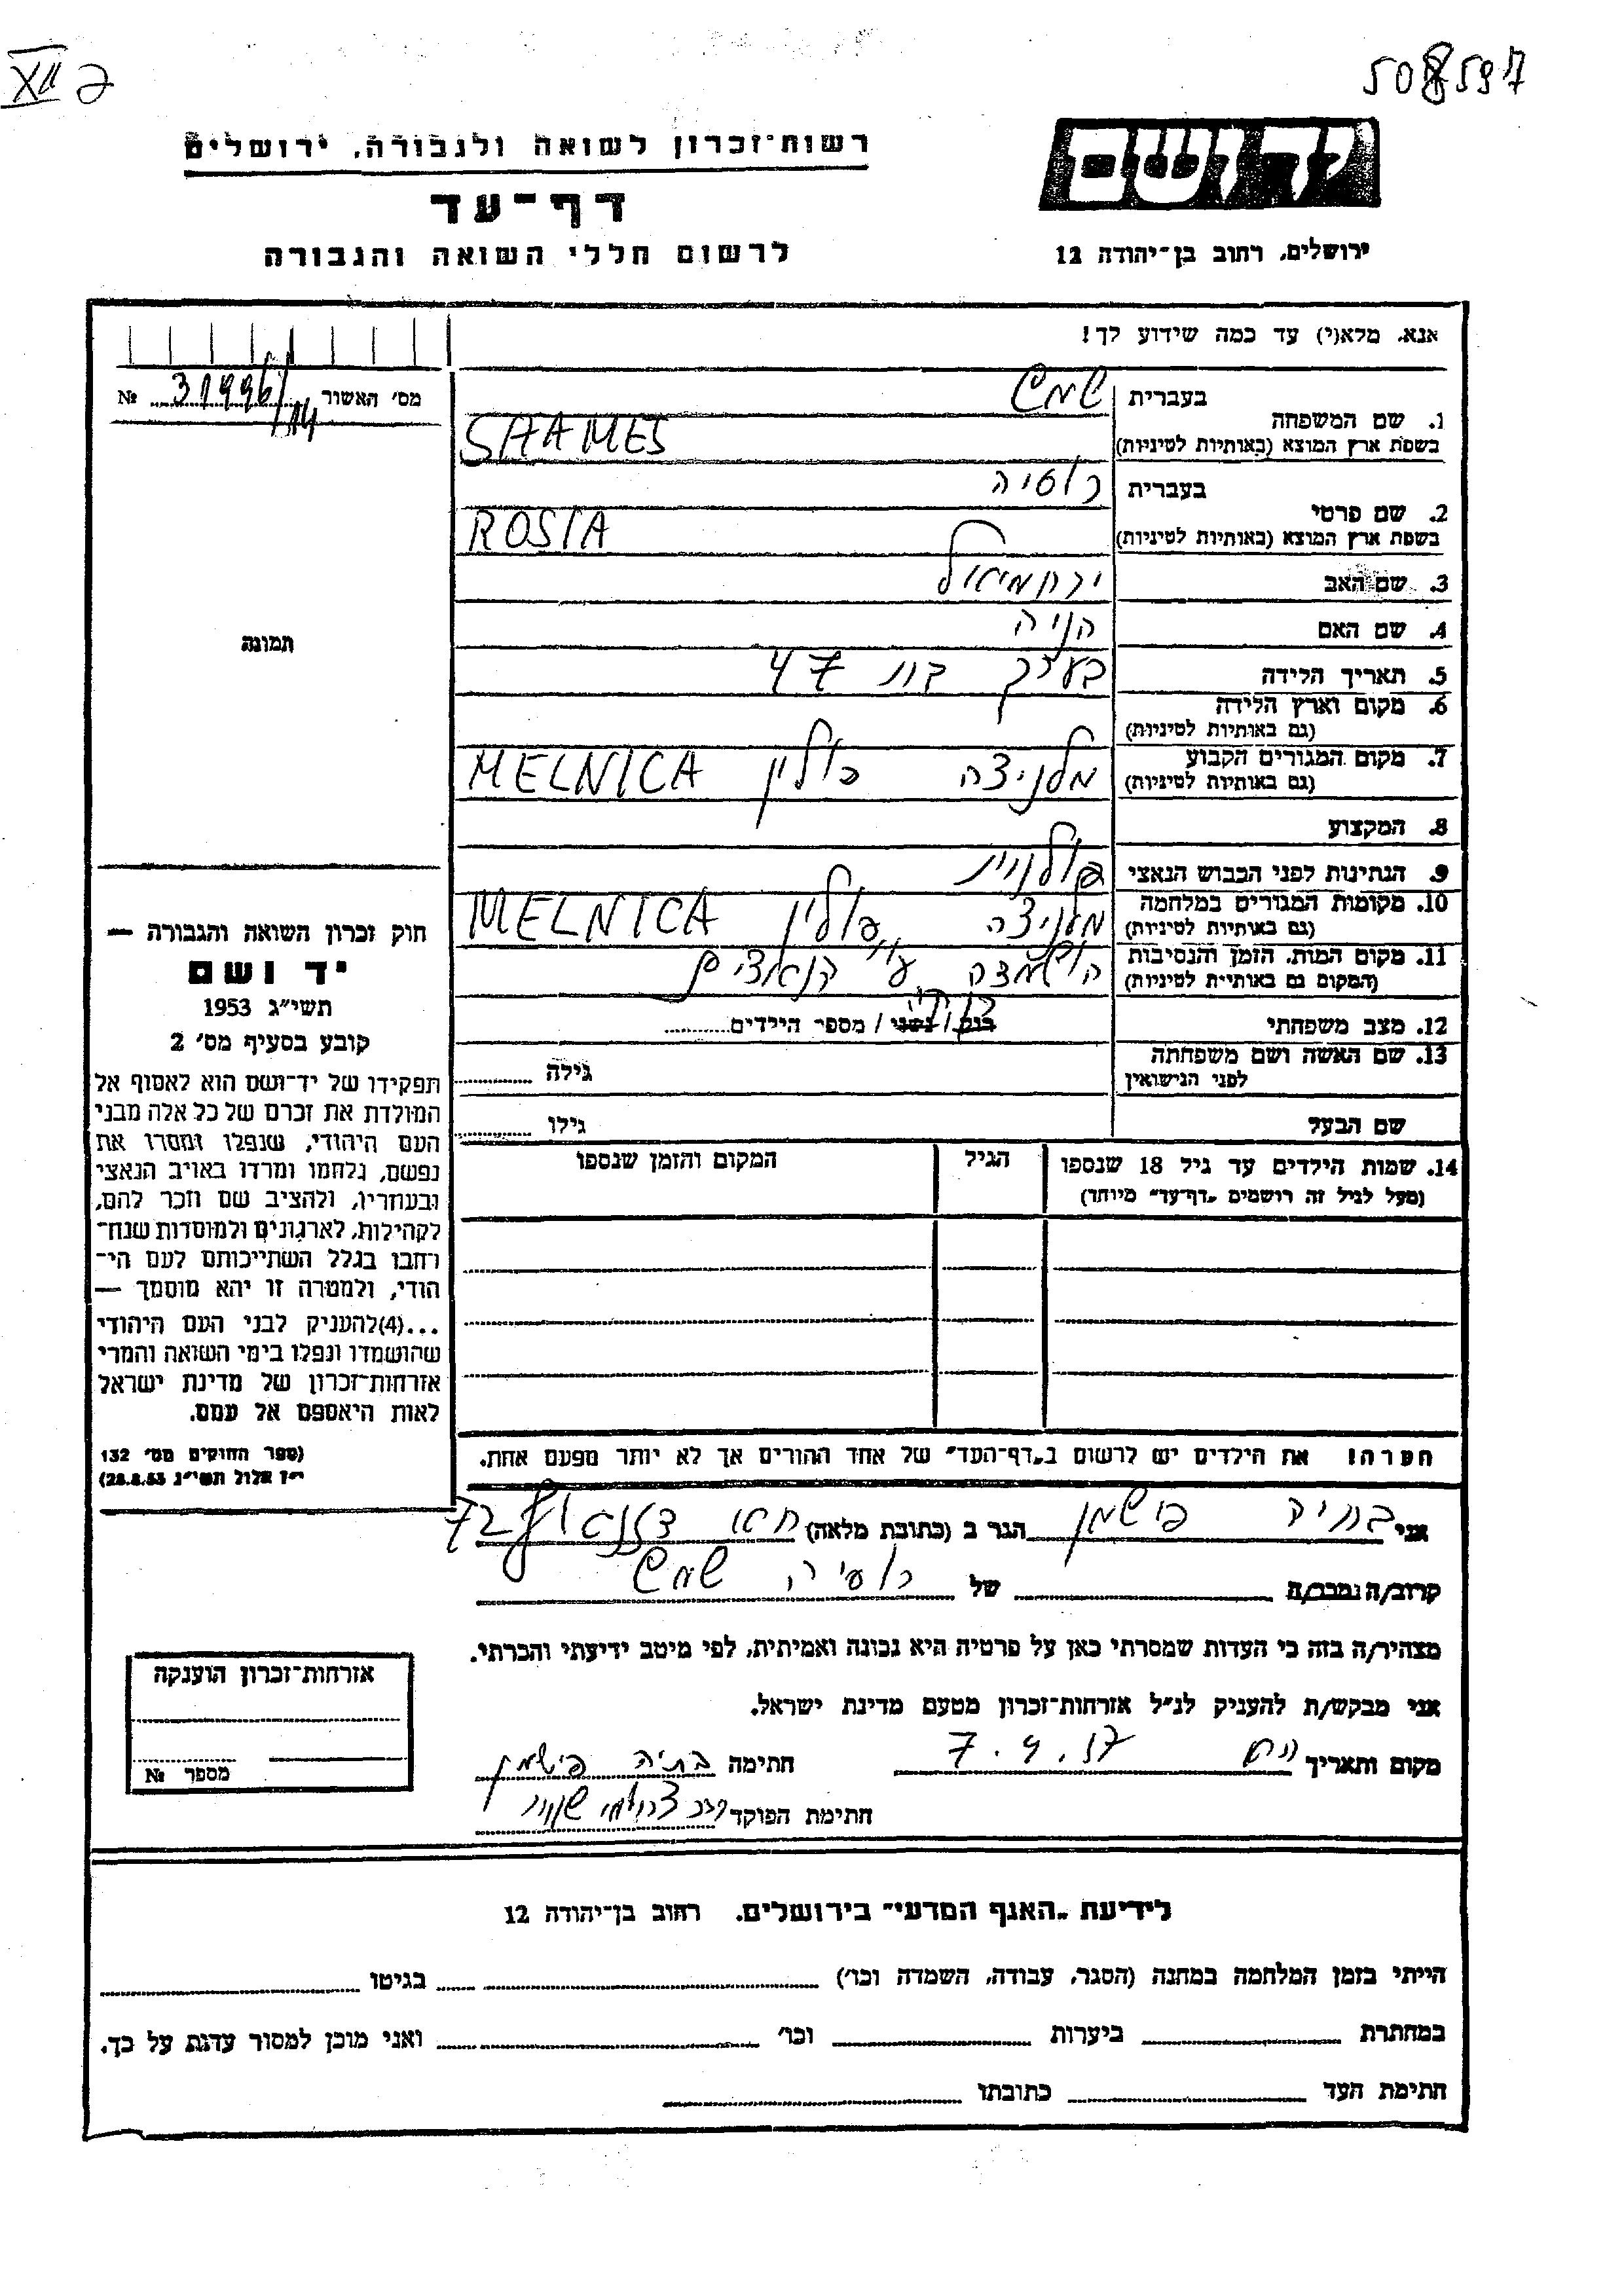 508597
XII 2
יד ושם
רשות־זכרון לשואה ולגבורה, ירושלים
דף־עד
ירושלים, רחוב בן־יהודה 12
לרשום חללי השואה והגבורה
אנא, מלא(י) עד כמה שידוע לך!
מס׳ האשור 31996/14 №
1. שם המשפחה
בעברית שמש
בשפת ארץ המוצא (באותיות לטיניות) SHAMES
2. שם פרטי
בעברית רוסיה
בשפת ארץ המוצא (באותיות לטיניות) ROSIA
3. שם האב ירחמיאל
4. שם האם הניה
תמונה
5. תאריך הלידה בערך בת 47
6. מקום וארץ הלידה
(גם באותיות לטיניות)
7. מקום המגורים הקבוע
(גם באותיות לטיניות) מלניצה פולין MELNICA
8. המקצוע
9. הנתינות לפני הכבוש הנאצי פולנית
10. מקומות המגורים במלחמה
(גם באותיות לטיניות) מלניצה פולין MELNICA
11. מקום המות, הזמן והנסיבות
(המקום גם באותיות לטיניות) הושמדה ע״י הנאצים
12. מצב משפחתי רווק / נשוי / מספר הילדים
13. שם האשה ושם משפחתה
לפני הנישואין גילה
שם הבעל גילו
14. שמות הילדים עד גיל 18 שנספו הגיל המקום והזמן שנספו
(מעל לגיל זה רושמים „דף־עד״ מיוחד)
חוק זכרון השואה והגבורה —
יד ושם
תשי״ג 1953
קובע בסעיף מס׳ 2
תפקידו של יד־ושם הוא לאסוף אל
המולדת את זכרם של כל אלה מבני
העם היהודי, שנפלו ומסרו את
נפשם, נלחמו ומרדו באויב הנאצי
ובעוזריו, ולהציב שם וזכר להם,
לקהילות, לארגונים ולמוסדות שנח־
רבו בגלל השתייכותם לעם הי־
הודי, ולמטרה זו יהא מוסמך —
...(4)להעניק לבני העם היהודי
שהושמדו ונפלו בימי השואה והמרי
אזרחות־זכרון של מדינת ישראל
לאות היאספם אל עמם.
(ספר החוקים מס׳ 132
י״ז אלול תשי״ג 28.8.53)
הערה! את הילדים יש לרשום ב„דף־העד״ של אחד ההורים אך לא יותר מפעם אחת.
אני בתיה פישמן הגר ב (כתובת מלאה) 72
קרוב/ה /מכר/ה של רוסיה שמש
מצהיר/ה בזה כי העדות שמסרתי כאן על פרטיה היא נכונה ואמיתית, לפי מיטב ידיעתי והכרתי.
אני מבקש/ת להעניק לנ״ל אזרחות־זכרון מטעם מדינת ישראל.
מקום ותאריך 7.4.57 חתימה בתיה פישמן
חתימת הפוקד
אזרחות־זכרון הוענקה
מספר №
לידיעת „האגף המדעי״ בירושלים, רחוב בן־יהודה 12
הייתי בזמן המלחמה במחנה (הסגר, עבודה, השמדה וכו׳) בגיטו
במחתרת ביערות וכו׳ ואני מוכן למסור עדות על כך.
חתימת העד כתובתו